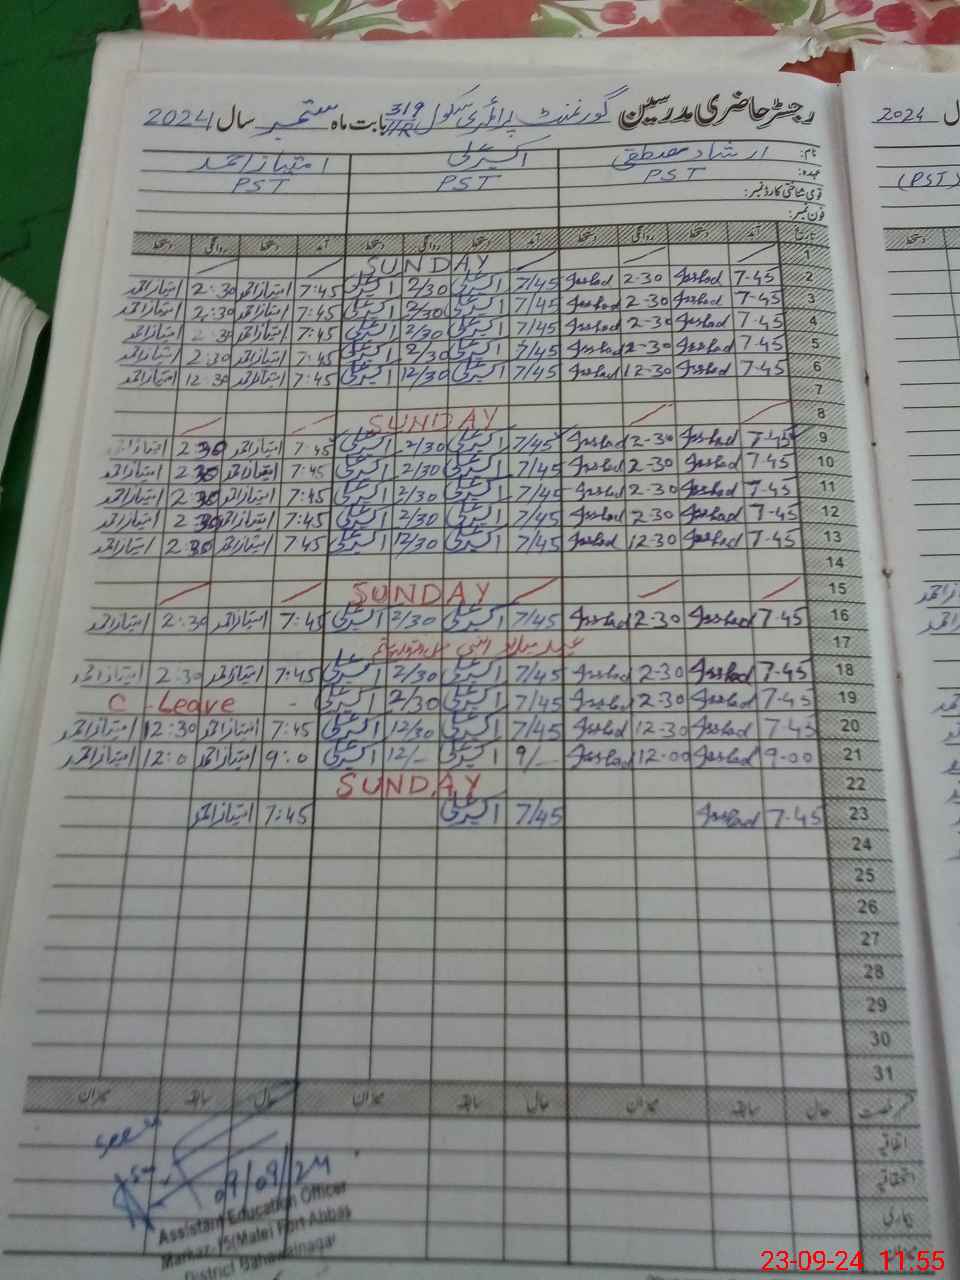 رجسٹر حاضری مدرسین گورنمنٹ پرائمری سکول 319/HR بابت ماہ ستمبر سال 2024
نام: ارشاد مصطفیٰ اکبر علی امتیاز احمد
عہدہ: PST PST PST
قومی شناختی کارڈ نمبر:
فون نمبر:
تاریخ آمد دستخط روانگی دستخط آمد دستخط روانگی دستخط آمد دستخط روانگی دستخط
1 SUNDAY
2 7-45 Arshad 2-30 Arshad 7/45 اکبر علی 2/30 اکبر علی 7:45 امتیاز احمد 2:30 امتیاز احمد
3 7-45 Arshad 2-30 Arshad 7/45 اکبر علی 2/30 اکبر علی 7:45 امتیاز احمد 2:30 امتیاز احمد
4 7-45 Arshad 2-30 Arshad 7/45 اکبر علی 2/30 اکبر علی 7:45 امتیاز احمد 2:30 امتیاز احمد
5 7-45 Arshad 2-30 Arshad 7/45 اکبر علی 2/30 اکبر علی 7:45 امتیاز احمد 2:30 امتیاز احمد
6 7-45 Arshad 12-30 Arshad 7/45 اکبر علی 12/30 اکبر علی 7:45 امتیاز احمد 12:30 امتیاز احمد
7
8 SUNDAY
9 7-45 Arshad 2-30 Arshad 7/45 اکبر علی 2/30 اکبر علی 7:45 امتیاز احمد 2:30 امتیاز احمد
10 7-45 Arshad 2-30 Arshad 7/45 اکبر علی 2/30 اکبر علی 7:45 امتیاز احمد 2:30 امتیاز احمد
11 7-45 Arshad 2-30 Arshad 7/45 اکبر علی 2/30 اکبر علی 7:45 امتیاز احمد 2:30 امتیاز احمد
12 7-45 Arshad 2-30 Arshad 7/45 اکبر علی 2/30 اکبر علی 7:45 امتیاز احمد 2:30 امتیاز احمد
13 7-45 Arshad 12-30 Arshad 7/45 اکبر علی 12/30 اکبر علی 7:45 امتیاز احمد 2:30 امتیاز احمد
14
15 SUNDAY
16 7-45 Arshad 2-30 Arshad 7/45 اکبر علی 2/30 اکبر علی 7:45 امتیاز احمد 2:30 امتیاز احمد
17 عید میلاد النبی
18 7-45 Arshad 2-30 Arshad 7/45 اکبر علی 2/30 اکبر علی 7:45 امتیاز احمد 2:30 امتیاز احمد
19 7-45 Arshad 2-30 Arshad 7/45 اکبر علی 2/30 اکبر علی - C-Leave
20 7-45 Arshad 12-30 Arshad 7/45 اکبر علی 12/30 اکبر علی 7:45 امتیاز احمد 12:30 امتیاز احمد
21 9-00 Arshad 12-00 Arshad 9/- اکبر علی 12/- اکبر علی 9:0 امتیاز احمد 12:0 امتیاز احمد
22 SUNDAY
23 7-45 Arshad 7/45 اکبر علی 7:45 امتیاز احمد
24
25
26
27
28
29
30
31
رخصت حال سابقہ میزان حال سابقہ میزان حال سابقہ میزان
اتفاقیہ
بیماری
میزان
seen
09/09/24
Assistant Education Officer
District Bahawalnagar
2024
(PST)
23-09-24 11:55